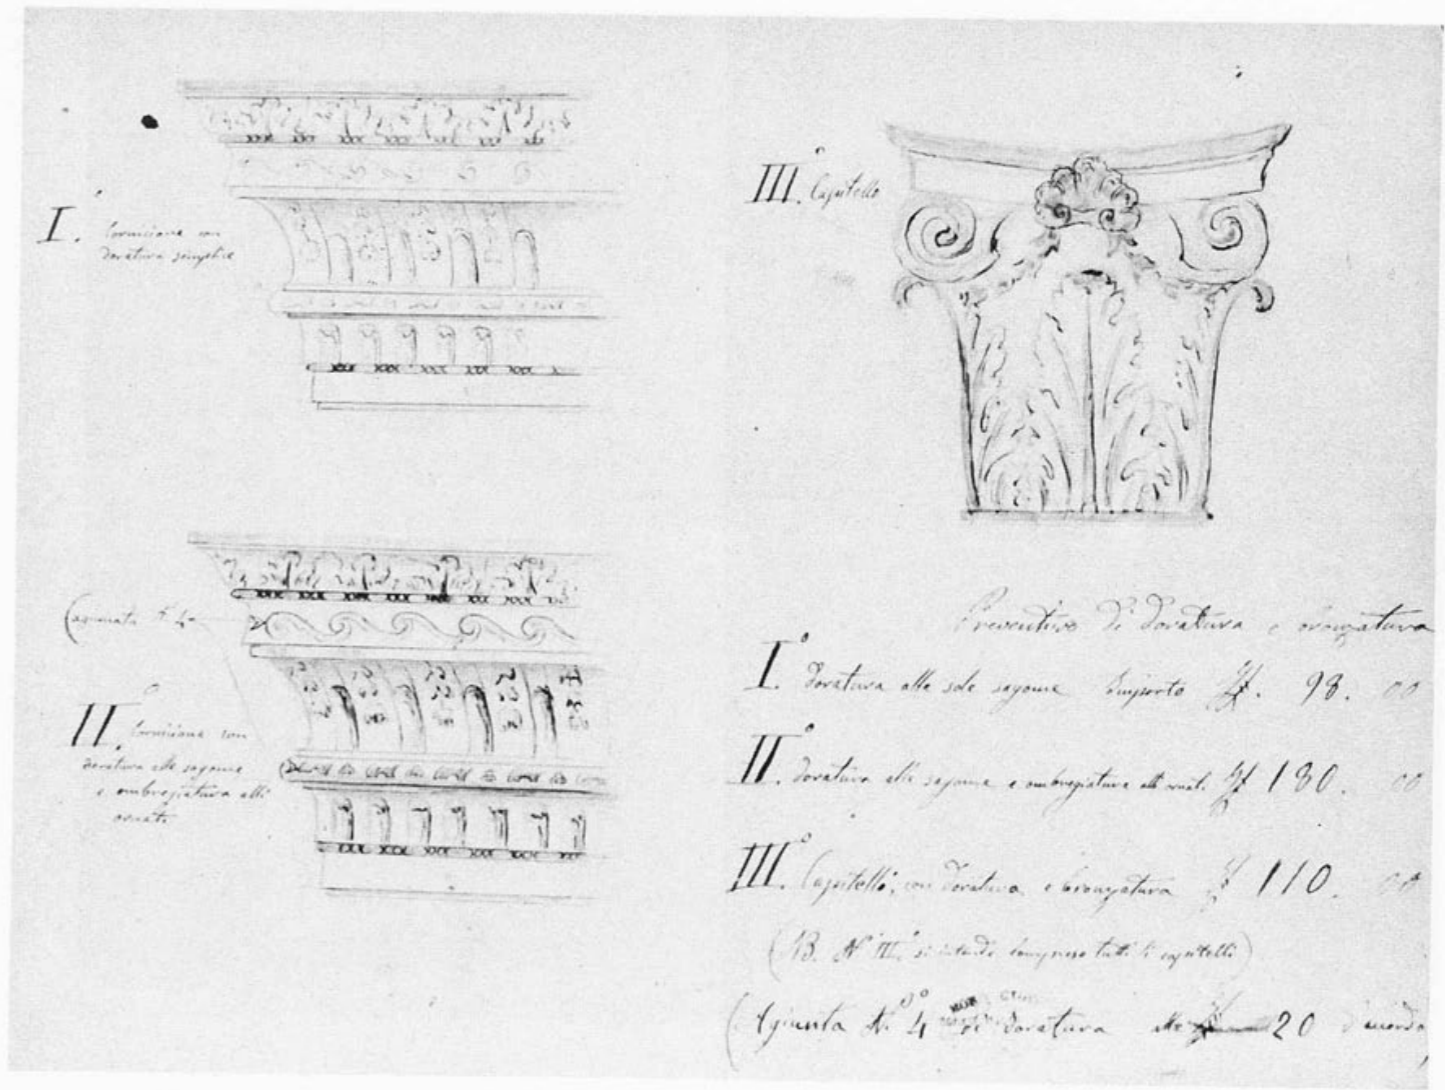 I. Cornicione con
doratura semplice
(agiunta N. 4
II. Cornicione con
doratura alle sagome
e ombregiatura alli
ornati
III.° Capitello
Preventivo di doratura e bronzatura
I.° doratura alle sole sagome Importo 98. 00
II.° doratura alle sagome e ombregiatura alli ornati 180. 00
III.° Capitelli, con doratura e bronzatura 110. 00
(NB. N° III° si intende compreso tutti li capitelli)
(Agiunta N.° 4 di doratura 20 d'accordo